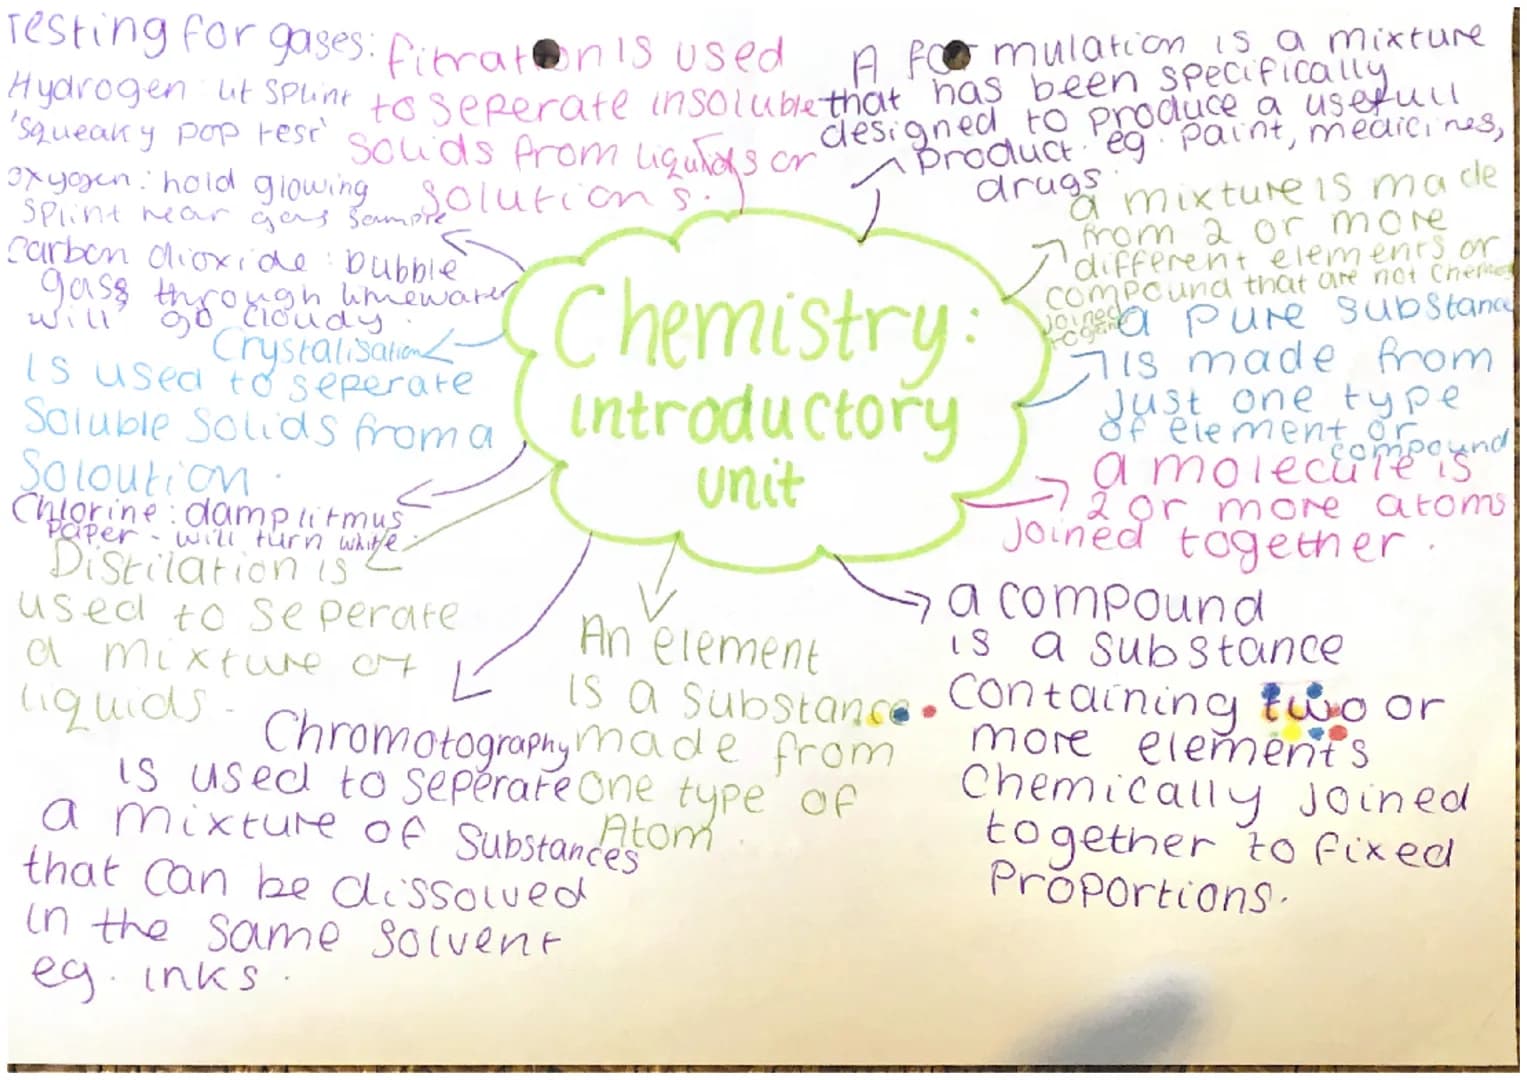 Testing for gases:
Hydrogen: lit splint
'squeaky pop test'
oxygen: hold glowing
splint near gas sample
carbon dioxide: bubble
gass through limewater
will go cloudy.
filtration is used
to seperate insoluble
solids from liquids or
solutions.
A formulation is a mixture
that has been specifically
designed to produce a usefull
product. eg. paint, medicines,
drugs.
a mixture is made
from 2 or more
different elements or
compound that are not chemically
joined
together
a pure substance
is made from
just one type
of element or
compound
a molecule is
2 or more atoms
joined together.
a compound
is a substance
containing two or
more elements
chemically joined
together to fixed
proportions.
Chemistry:
introductory
unit
Crystalisation
is used to seperate
soluble solids from a
soloution.
Chlorine: damp litmus
paper - will turn white.
Distilation is
used to seperate
a mixture of
liquids.
An element
is a substance
made from
one type of
Atom.
Chromotography
is used to seperate
a mixture of substances
that can be dissolved
in the same solvent
eg. inks.